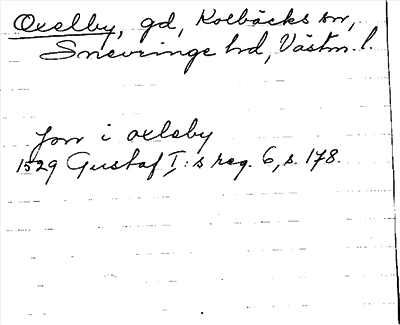 Oxelby, gd, Kolbäcks sn,
Snevringe hd, Västm. l.
Jon i oxlaby
1529 Gustaf I:s reg. 6, s. 178.